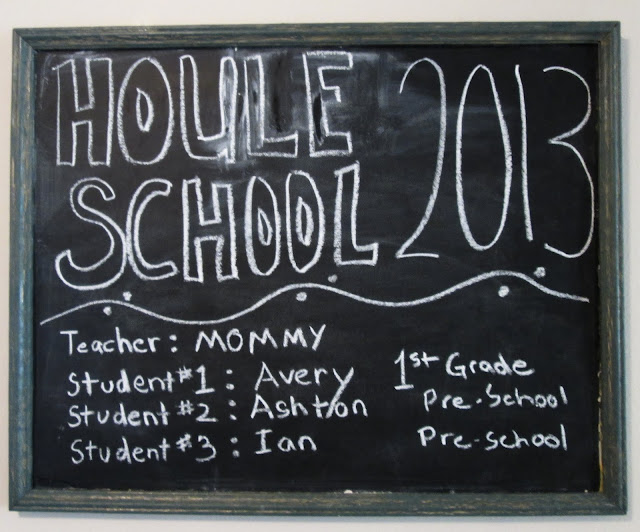 HOULE 2013
SCHOOL
Teacher: MOMMY
Student #1: Avery 1st Grade
Student #2: Ashton Pre-School
Student #3: Ian Pre-school